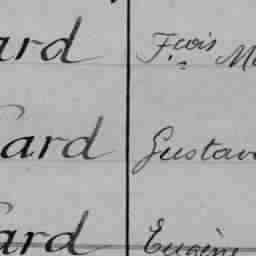 ard F.cois M
ard Gustav
ard Eugène